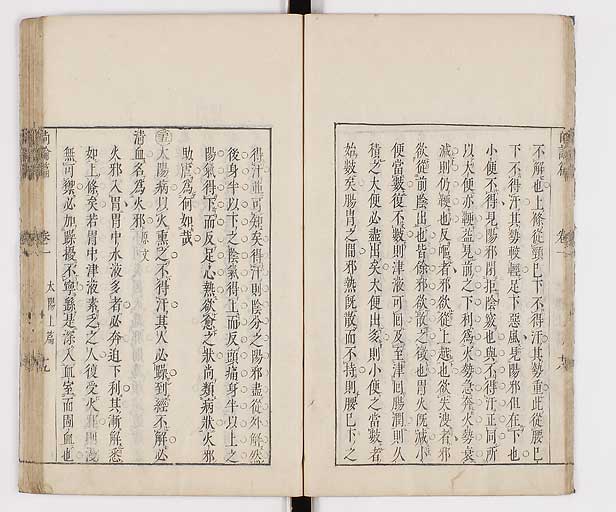 不解也上條從頸巳下不得汗其勢重此從腰巳
下不得汗其勢較輕足下惡風是陽邪但在下也
小便不得見陽邪閉拒陰竅也與不得汗正同所
以大便亦鞕益見前之下利爲火勢急奔火勢衰
減則仍鞕也反嘔者邪欲從上越也欲失溲者邪
欲從前陰出也皆餘邪欲散之徵也胃火旣減小
便當數復不數則津液可囘及至津囘腸潤則久
積之大便必盡出矣大便出多則小便之當數者
始數矣腸胃之間邪熱旣散而不持則腰巳下之
得汗並可知矣得汗則陰分之陽邪盡從外解然
後身半以下之陰氣得上而反頭痛身半以上之
陽氣得下而反足心熱欲愈之狀尚類病狀火邪
助虐爲何如哉
太陽病以火熏之不得汗其人必躁到經不解必
淸血名爲火邪原文
火邪入胃胃中水液多者必奔迫下利其漸解悉
如上條矣若胃中津液素乏之人復受火邪則漫
無可禦必加躁擾不寧繇是深入血室而圊血也
尚論篇
卷一
太陽上篇